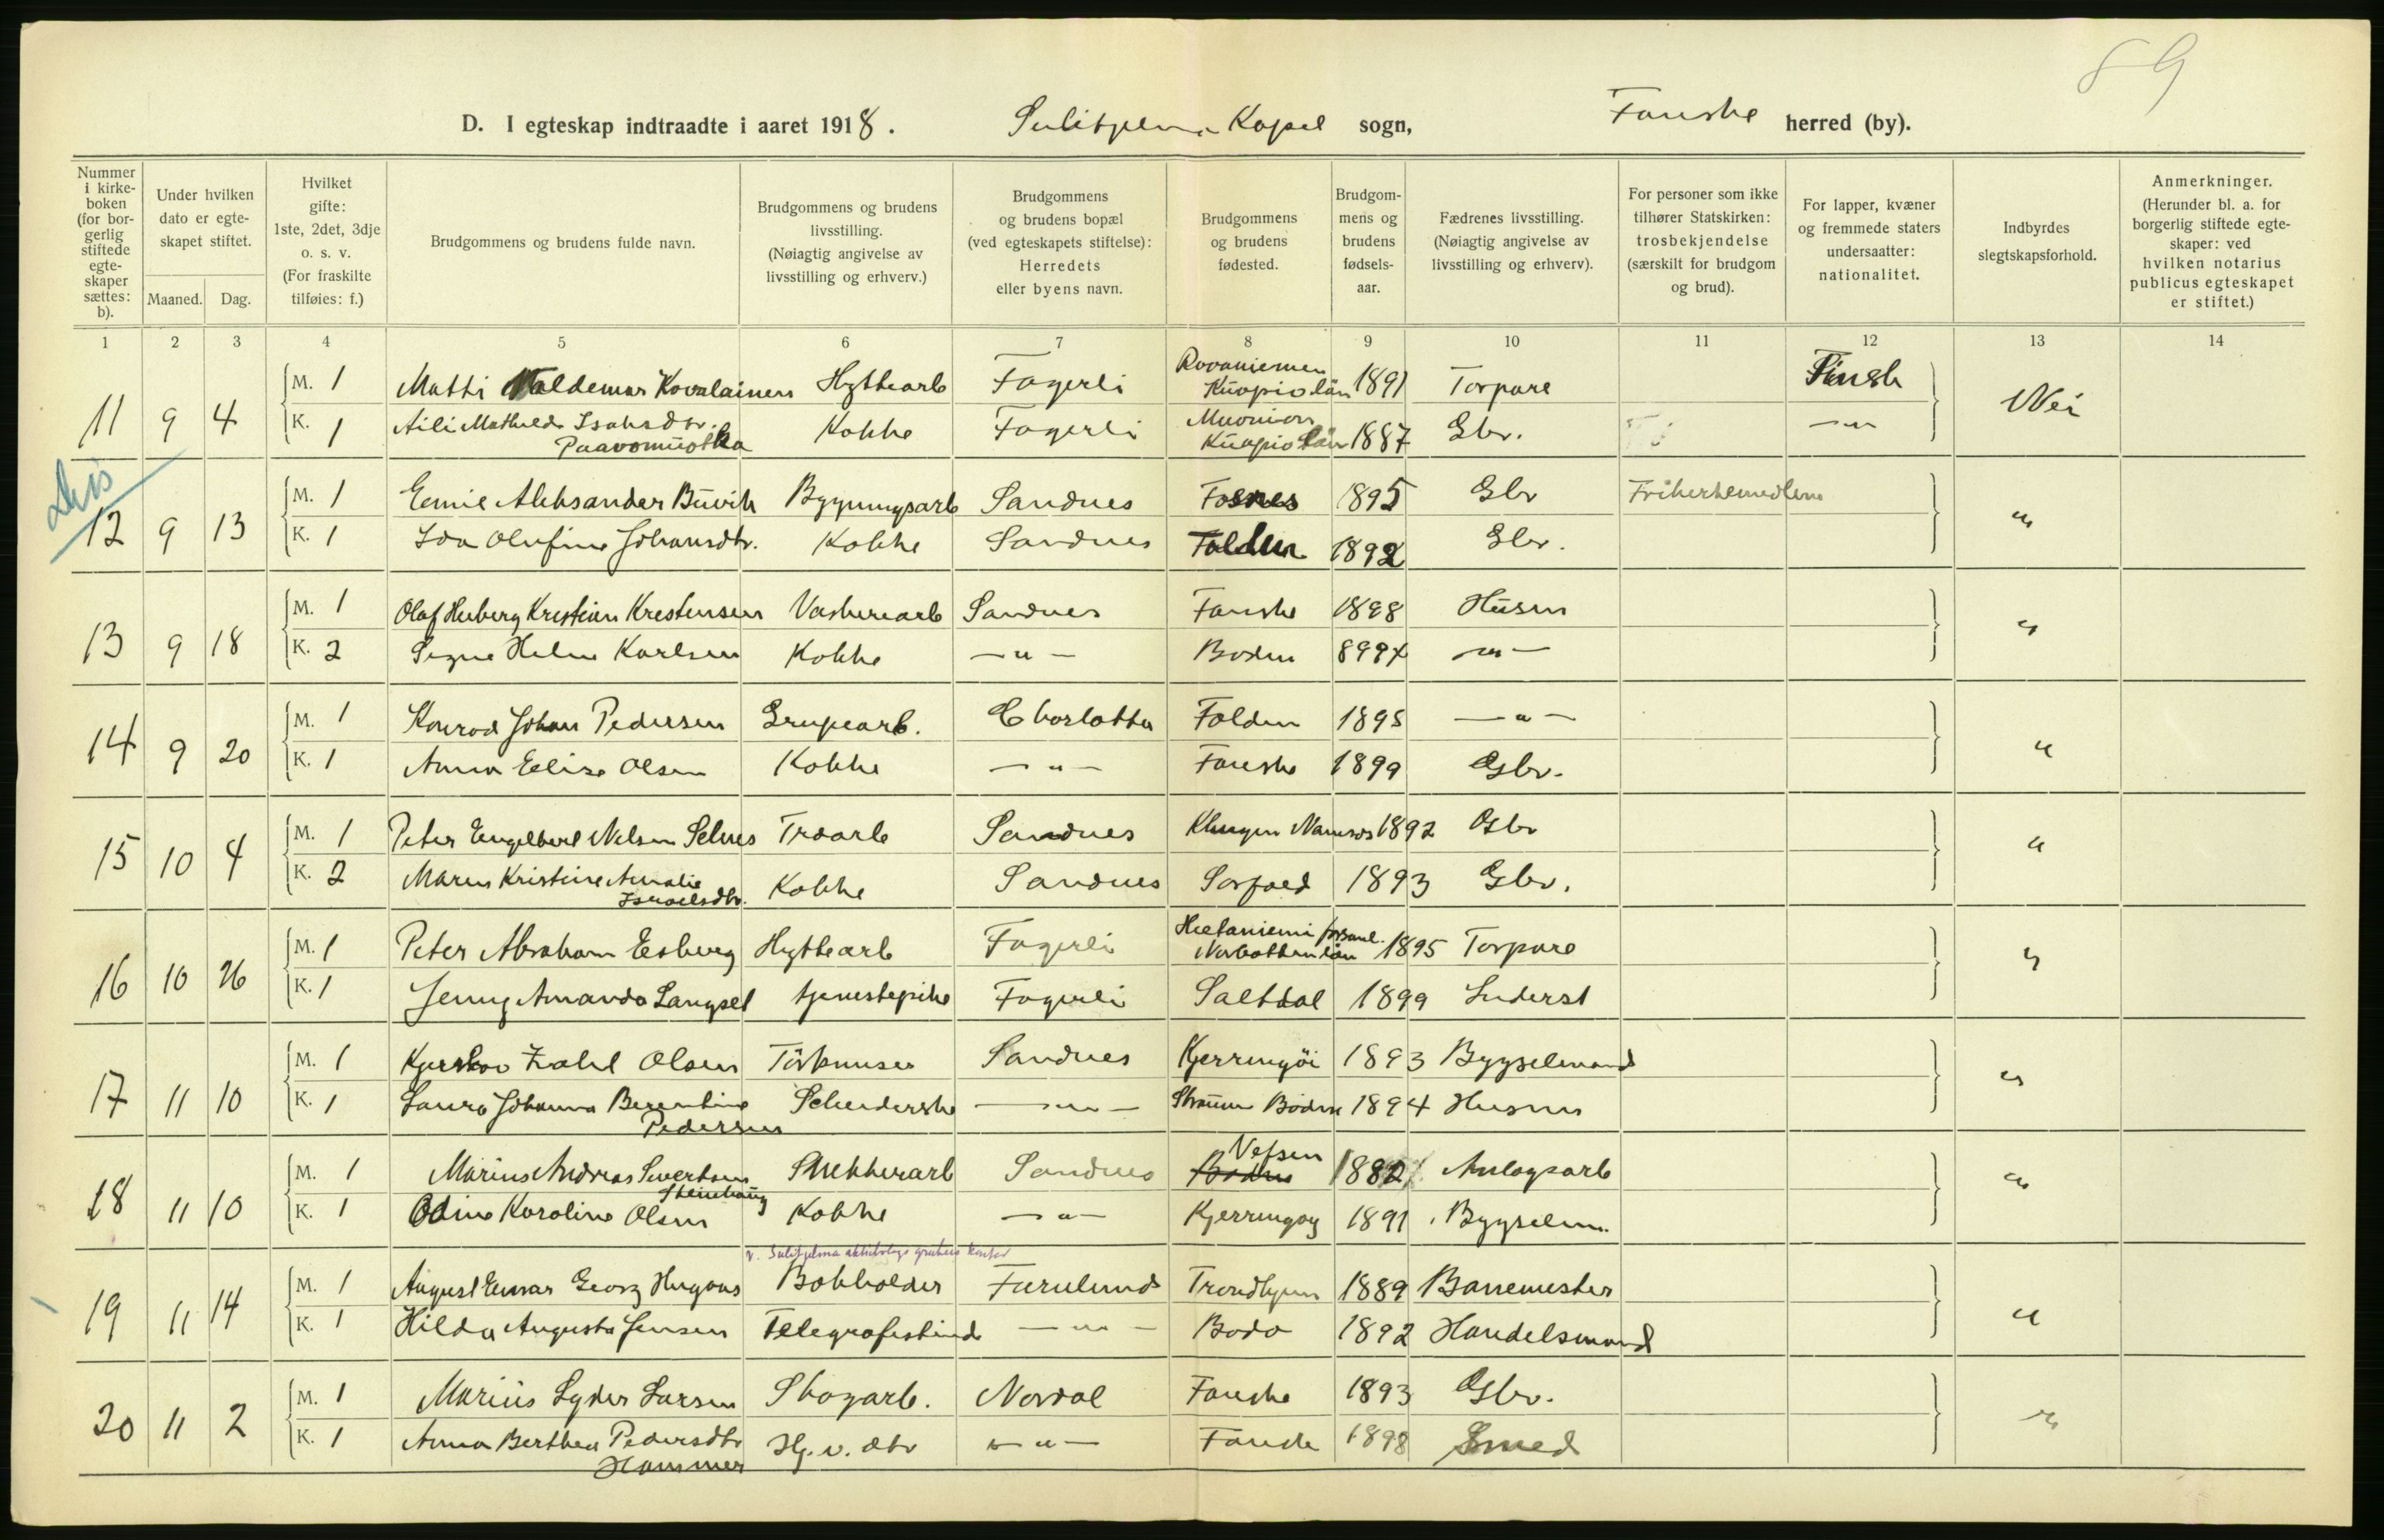 89
D. I egteskap indtraadte i aaret 1918. Sulitjelma Kapel sogn, Fauske herred (by).
Nummer i kirkeboken (for borgerlig stiftede egteskaper sættes: b).
Under hvilken dato er egteskapet stiftet.
Maaned. Dag.
Hvilket gifte: 1ste, 2det, 3dje o. s. v. (For fraskilte tilføies: f.)
Brudgommens og brudens fulde navn.
Brudgommens og brudens livsstilling. (Nøiagtig angivelse av livsstilling og erhverv.)
Brudgommens og brudens bopæl (ved egteskapets stiftelse): Herredets eller byens navn.
Brudgommens og brudens fødested.
Brudgommens og brudens fødselsaar.
Fædrenes livsstilling. (Nøiagtig angivelse av livsstilling og erhverv).
For personer som ikke tilhører Statskirken: trosbekjendelse (særskilt for brudgom og brud).
For lapper, kvæner og fremmede staters undersaatter: nationalitet.
Indbyrdes slegtskapsforhold.
Anmerkninger. (Herunder bl. a. for borgerlig stiftede egteskaper: ved hvilken notarius publicus egteskapet er stiftet.)
1 2 3 4 5 6 7 8 9 10 11 12 13 14
11 9 4 M. 1 Matti Valdemar Kovalainen Hyttearb Fagerli Rovaniemen Kuopio län 1891 Torpare Finsk Nei
K. 1 Aili Mathilda Isaksdtr. Paavomuotka Kokke Fagerli Muonion Kuopio län 1887 Gbr. —"—
Dis
12 9 13 M. 1 Emil Aleksander Buvik Bygningsarb Sandnes Fosnes 1895 Gbr Frikirkemedlem "
K. 1 Ida Olufine Johansdtr. Kokke Sandnes Folden 1892 Gbr.
13 9 18 M. 1 Olaf Heiberg Kristian Krestensen Vaskeriarb Sandnes Fauske 1898 Husm "
K. 2 Signe Helene Karlsen Kokke —"— Bodin 899 —"—
14 9 20 M. 1 Konrad Johan Pedersen Grupearb. Charlotta Folden 1895 —"— "
K. 1 Anna Elise Olsen Kokke —"— Fauske 1899 Gbr.
15 10 4 M. 1 Peter Engelbert Nilsen Selnes Traarb Sandnes Klingen Namsos 1892 Gbr "
K. 2 Maren Kristine Amalie Israelsdtr. Kokke Sandnes Sørfold 1893 Gbr.
16 10 26 M. 1 Peter Abraham Esberg Hyttearb Fagerli Hietaniemi forsaml. Norbottenlän 1895 Torpare "
K. 1 Jenny Amanda Langset tjenestepike Fagerli Saltdal 1899 Inderst
17 11 10 M. 1 Zahl Olsen Sandnes Kjerringöi 1893 Bygselmand "
K. 1 Laura Johanna Berentine Pedersen —"— Bodin 1894 Husm
18 11 10 M. 1 Marius Andreas Sivertsen Steinhaug Snekkerarb Sandnes Bodin Vefsen 1882 Anlægsarb "
K. 1 Odine Karoline Olsen Kokke —"— Kjerringøy 1891 Bygselm.
v. Sulitjelma aktiebolags grubers kontor
19 11 14 M. 1 August Einar Georg Hugaas Bokholder Furulund Trondhjem 1889 Banemester "
K. 1 Hilda Augusta Jensen Telegrafistinde —"— Bodø 1892 Handelsmand
20 11 2 M. 1 Marius Lyder Larsen Skogarb. Nordal Fauske 1893 Gbr. "
K. 1 Anna Berthea Pedersdtr Hammer Hj. v. dtr —"— Fauske 1898 Smed